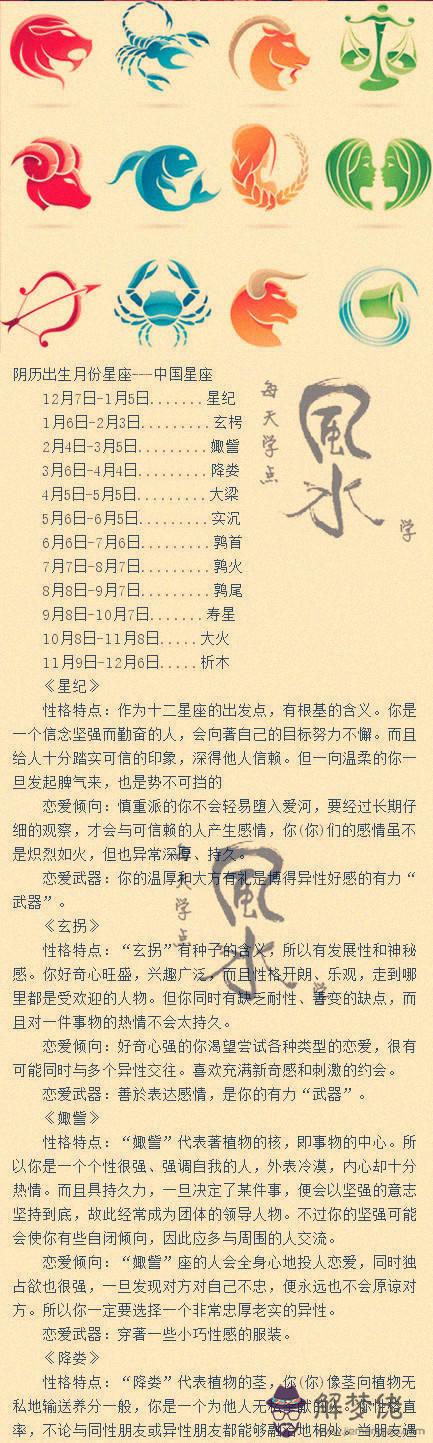 阴历出生月份星座---中国星座
12月7日-1月5日.......星纪
1月6日-2月3日.........玄枵
2月4日-3月5日.........娵訾
3月6日-4月4日.........降娄
4月5日-5月5日.........大梁
5月6日-6月5日.........实沉
6月6日-7月6日.........鹑首
7月7日-8月7日.........鹑火
8月8日-9月7日.........鹑尾
9月8日-10月7日.......寿星
10月8日-11月8日.....大火
11月9日-12月6日.....析木
每天学点
風水
学
《星纪》
性格特点：作为十二星座的出发点，有根基的含义。你是
一个信念坚强而勤奋的人，会向著自己的目标努力不懈。而且
给人十分踏实可信的印象，深得他人信赖。但一向温柔的你一
旦发起脾气来，也是势不可挡的
恋爱倾向：慎重派的你不会轻易堕入爱河，要经过长期仔
细的观察，才会与可信赖的人产生感情，你(你)们的感情虽不
是炽烈如火，但也异常深厚、持久。
恋爱武器：你的温厚和大方有礼是博得异性好感的有力“
武器”。
每天学点
風水
学
《玄拐》
性格特点：“玄拐”有种子的含义，所以有发展性和神秘
感。你好奇心旺盛，兴趣广泛，而且性格开朗、乐观，走到哪
里都是受欢迎的人物。但你同时有缺乏耐性、善变的缺点，而
且对一件事物的热情不会太持久。
恋爱倾向：好奇心强的你渴望尝试各种类型的恋爱，很有
可能同时与多个异性交往。喜欢充满新奇感和刺激的约会。
恋爱武器：善於表达感情，是你的有力“武器”。
《娵訾》
性格特点：“娵訾”代表著植物的核，即事物的中心。所
以你是一个个性很强、强调自我的人，外表冷漠，内心却十分
热情。而且具持久力，一旦决定了某件事，便会以坚强的意志
坚持到底，故此经常成为团体的领导人物。不过你的坚强可能
会使你有些自闭倾向，因此应多与周围的人交流。
恋爱倾向：“娵訾”座的人会全身心地投人恋爱，同时独
占欲也很强，一旦发现对方对自己不忠，便永远也不会原谅对
方。所以你一定要选择一个非常忠厚老实的异性。
恋爱武器：穿著一些小巧性感的服装。
《降娄》
性格特点：“降娄”代表植物的茎，你(你)像茎向植物无
私地输送养分一般，你是一个为他人无私奉献的人。你性格直
率，不论与同性朋友或异性朋友都能够融洽地相处。当朋友遇
解梦佬